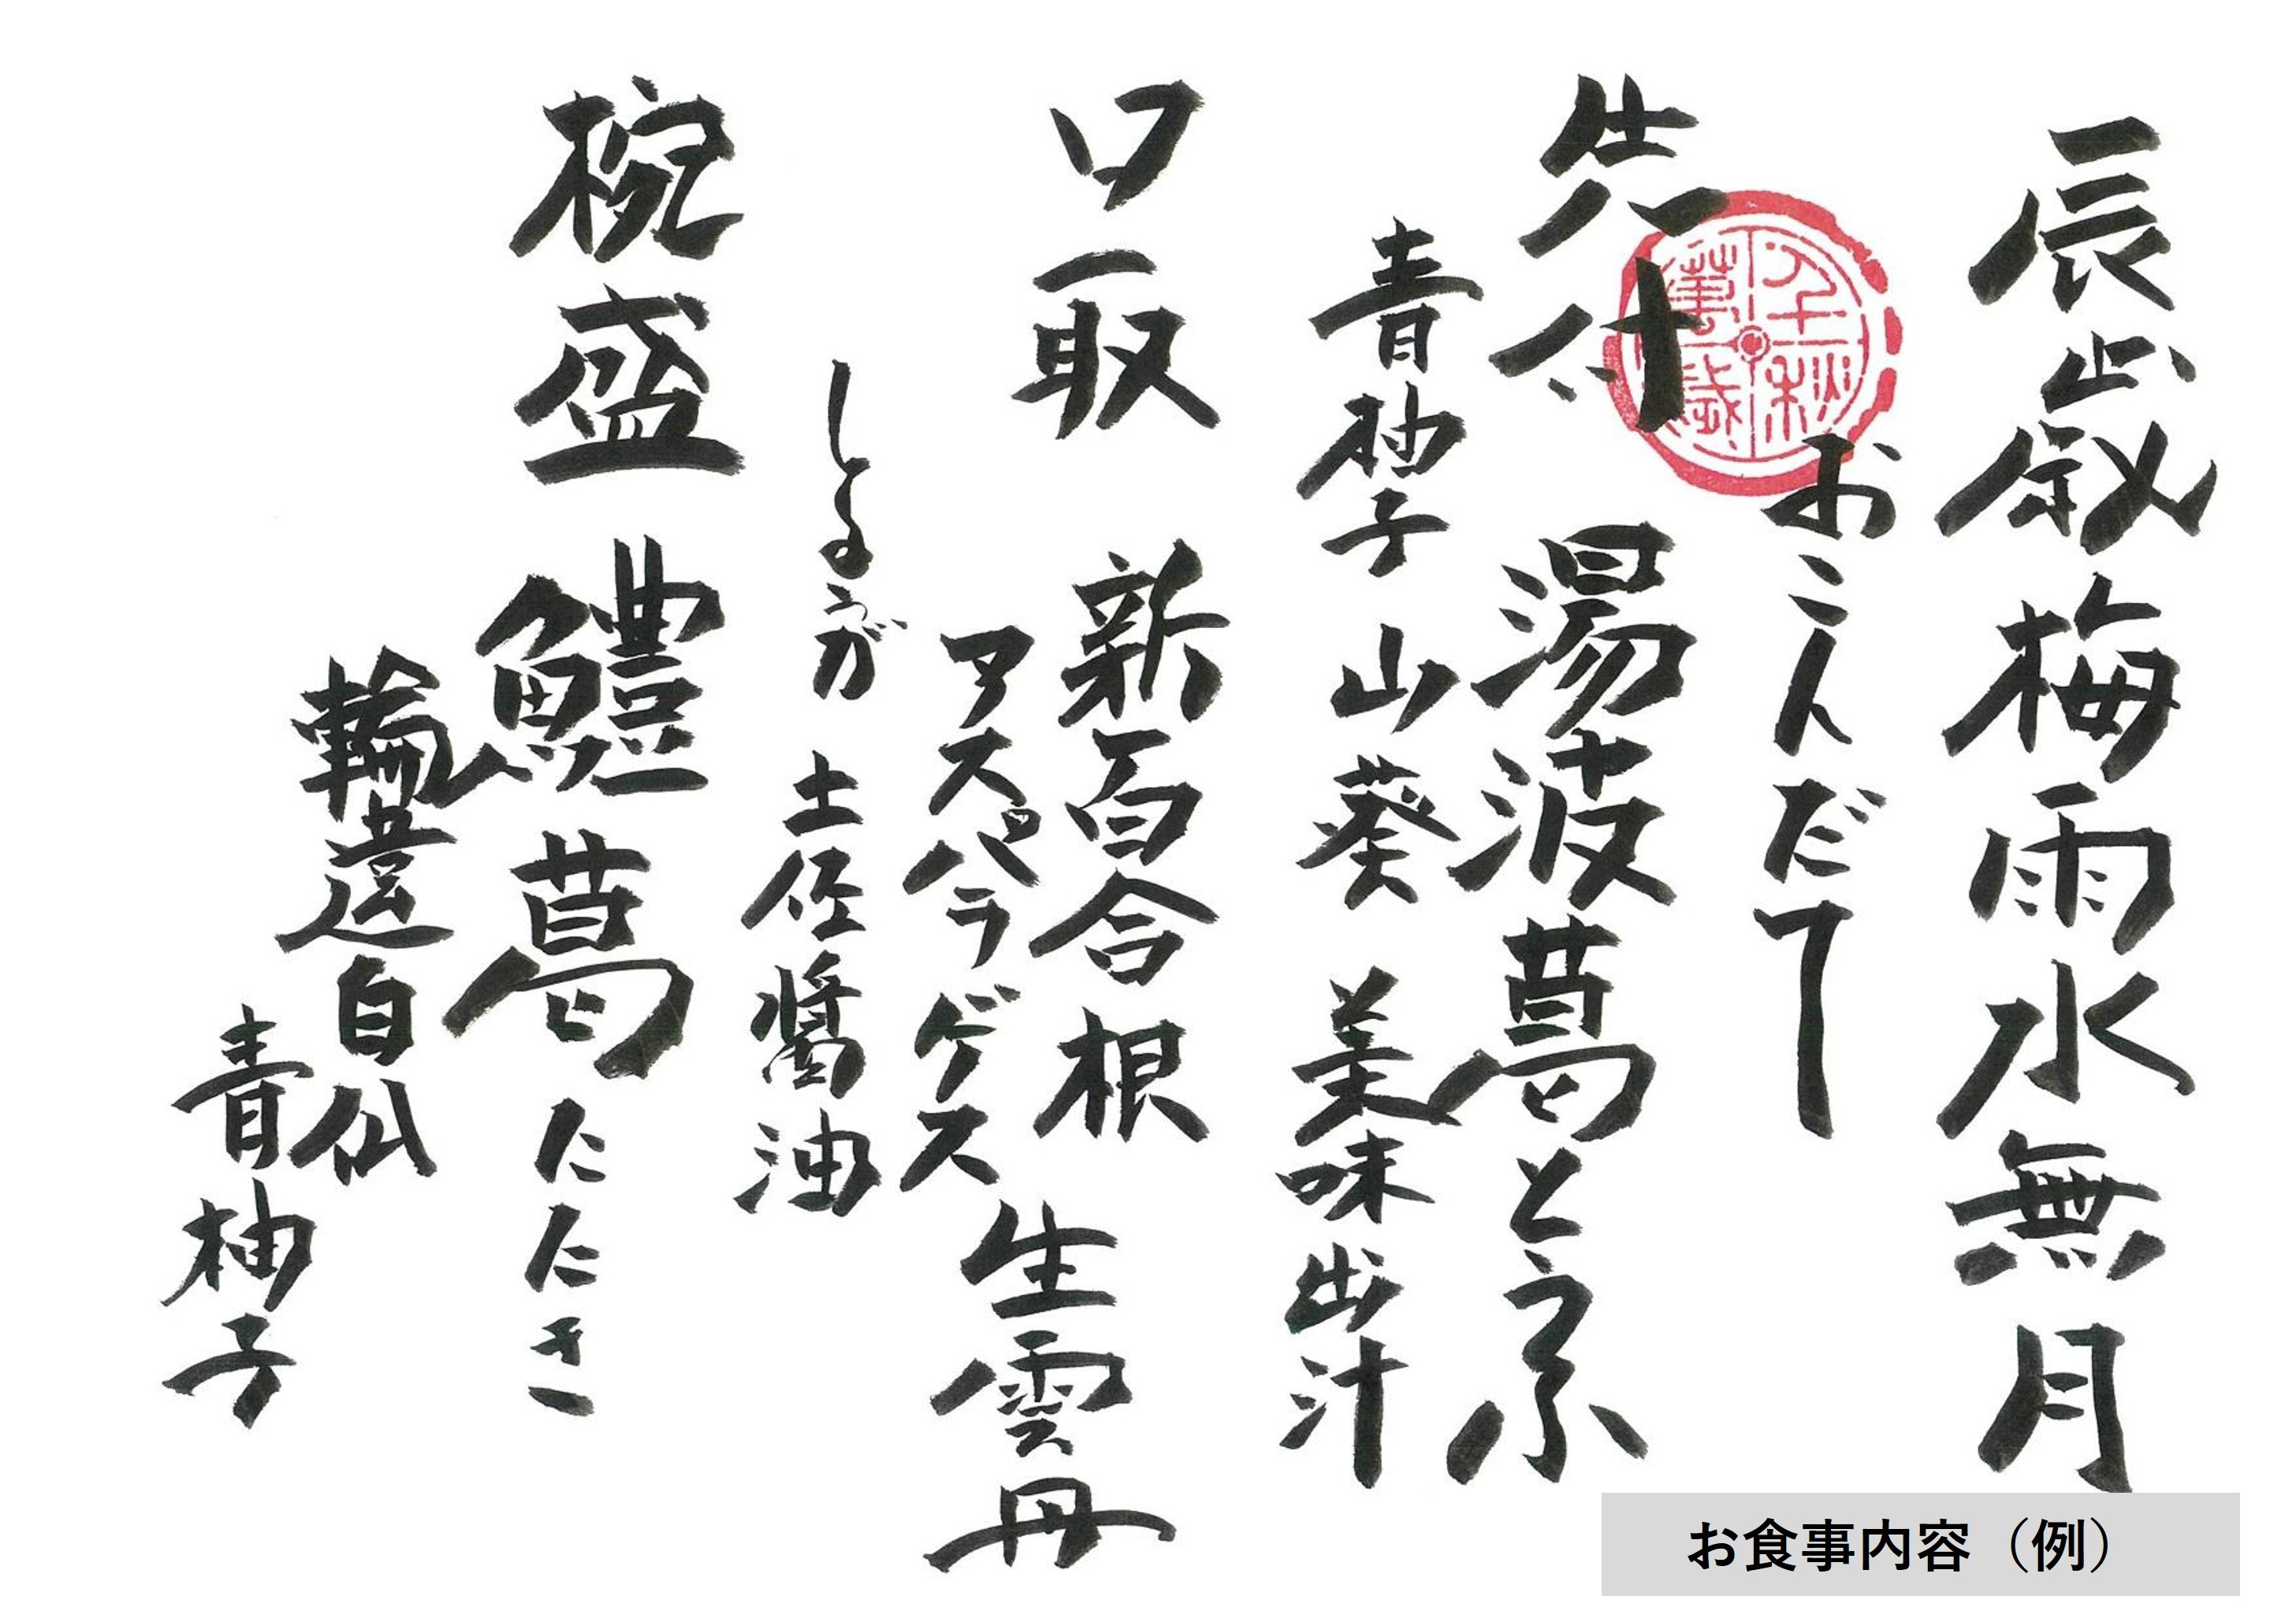 辰歳梅雨水無月
おこんだて
千秋萬歳
先付 湯波葛とうふ
青柚子 山葵 美味出汁
口取 新百合根
アスパラゲス
生雲丹
しょうが 土佐醤油
椀盛 鱧葛たたき
輪違白瓜
青柚子
お食事内容（例）